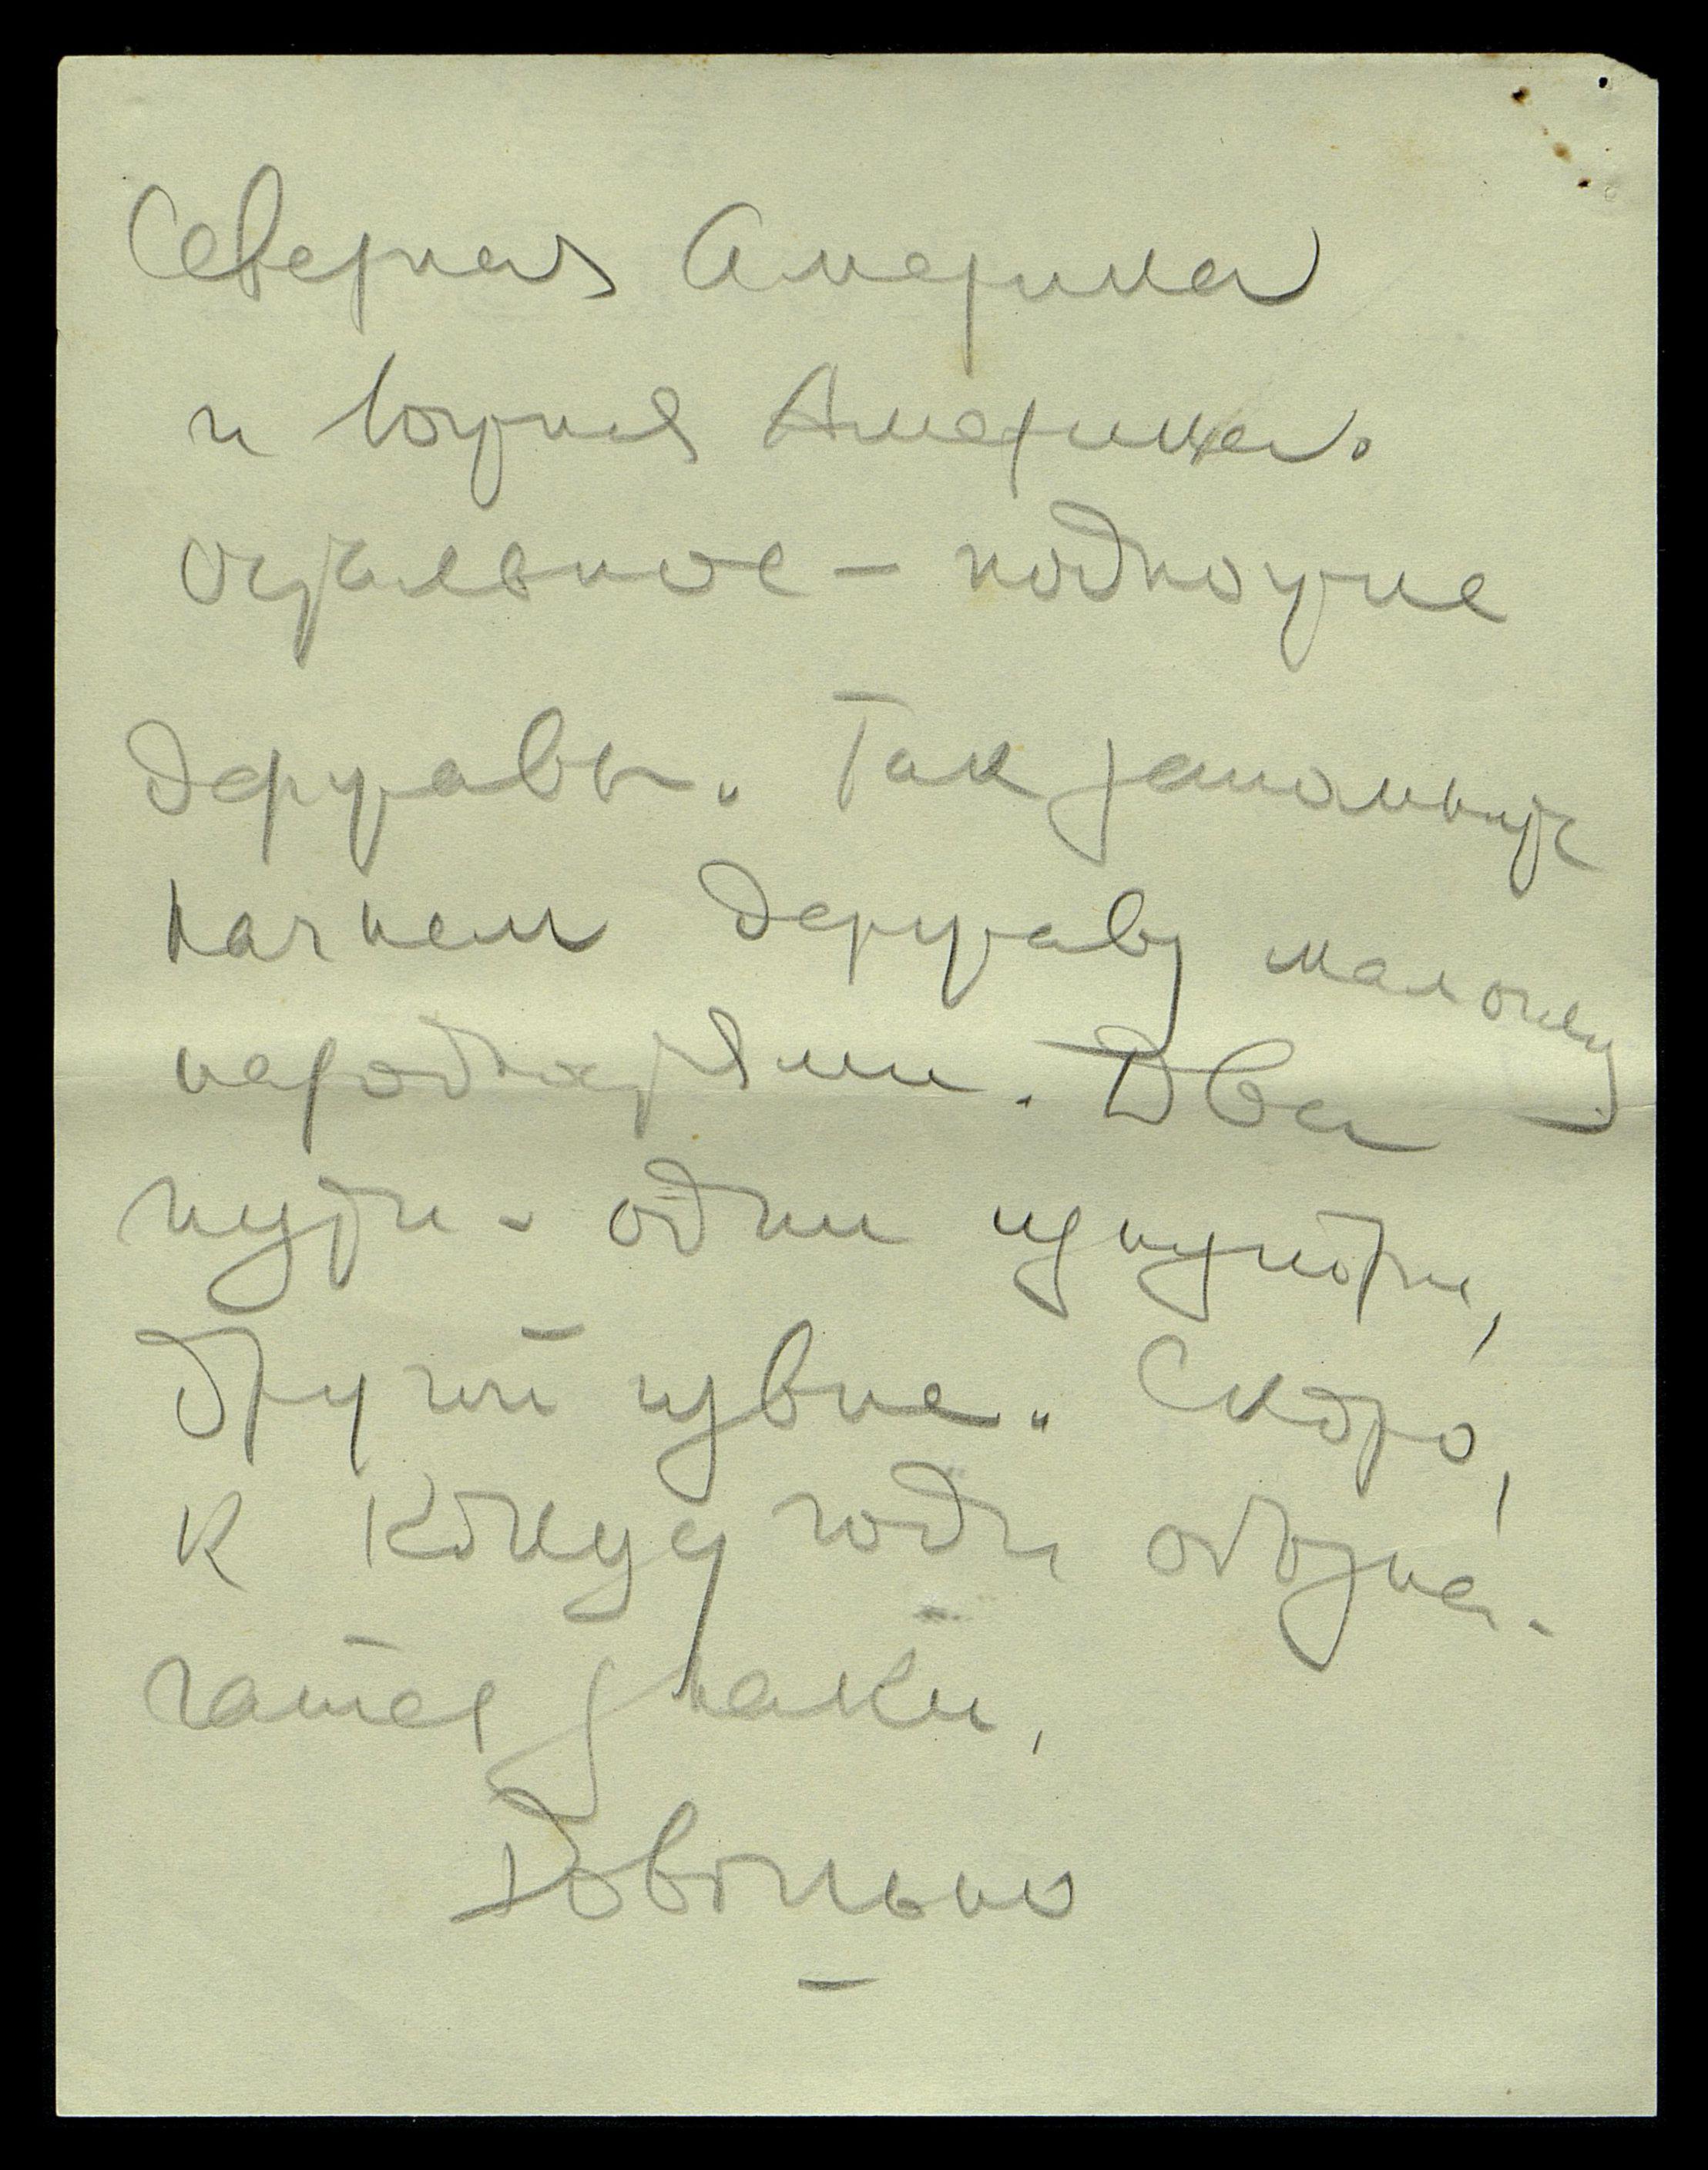 Северная Америка
и Южная Америка.
Остальное — подножие
державы. Так запомните
начнем державу малочисл
народностями. Два
пути — один изнутри,
другой извне. Скоро,
к концу года обозна-
чатся знаки.
Довольно